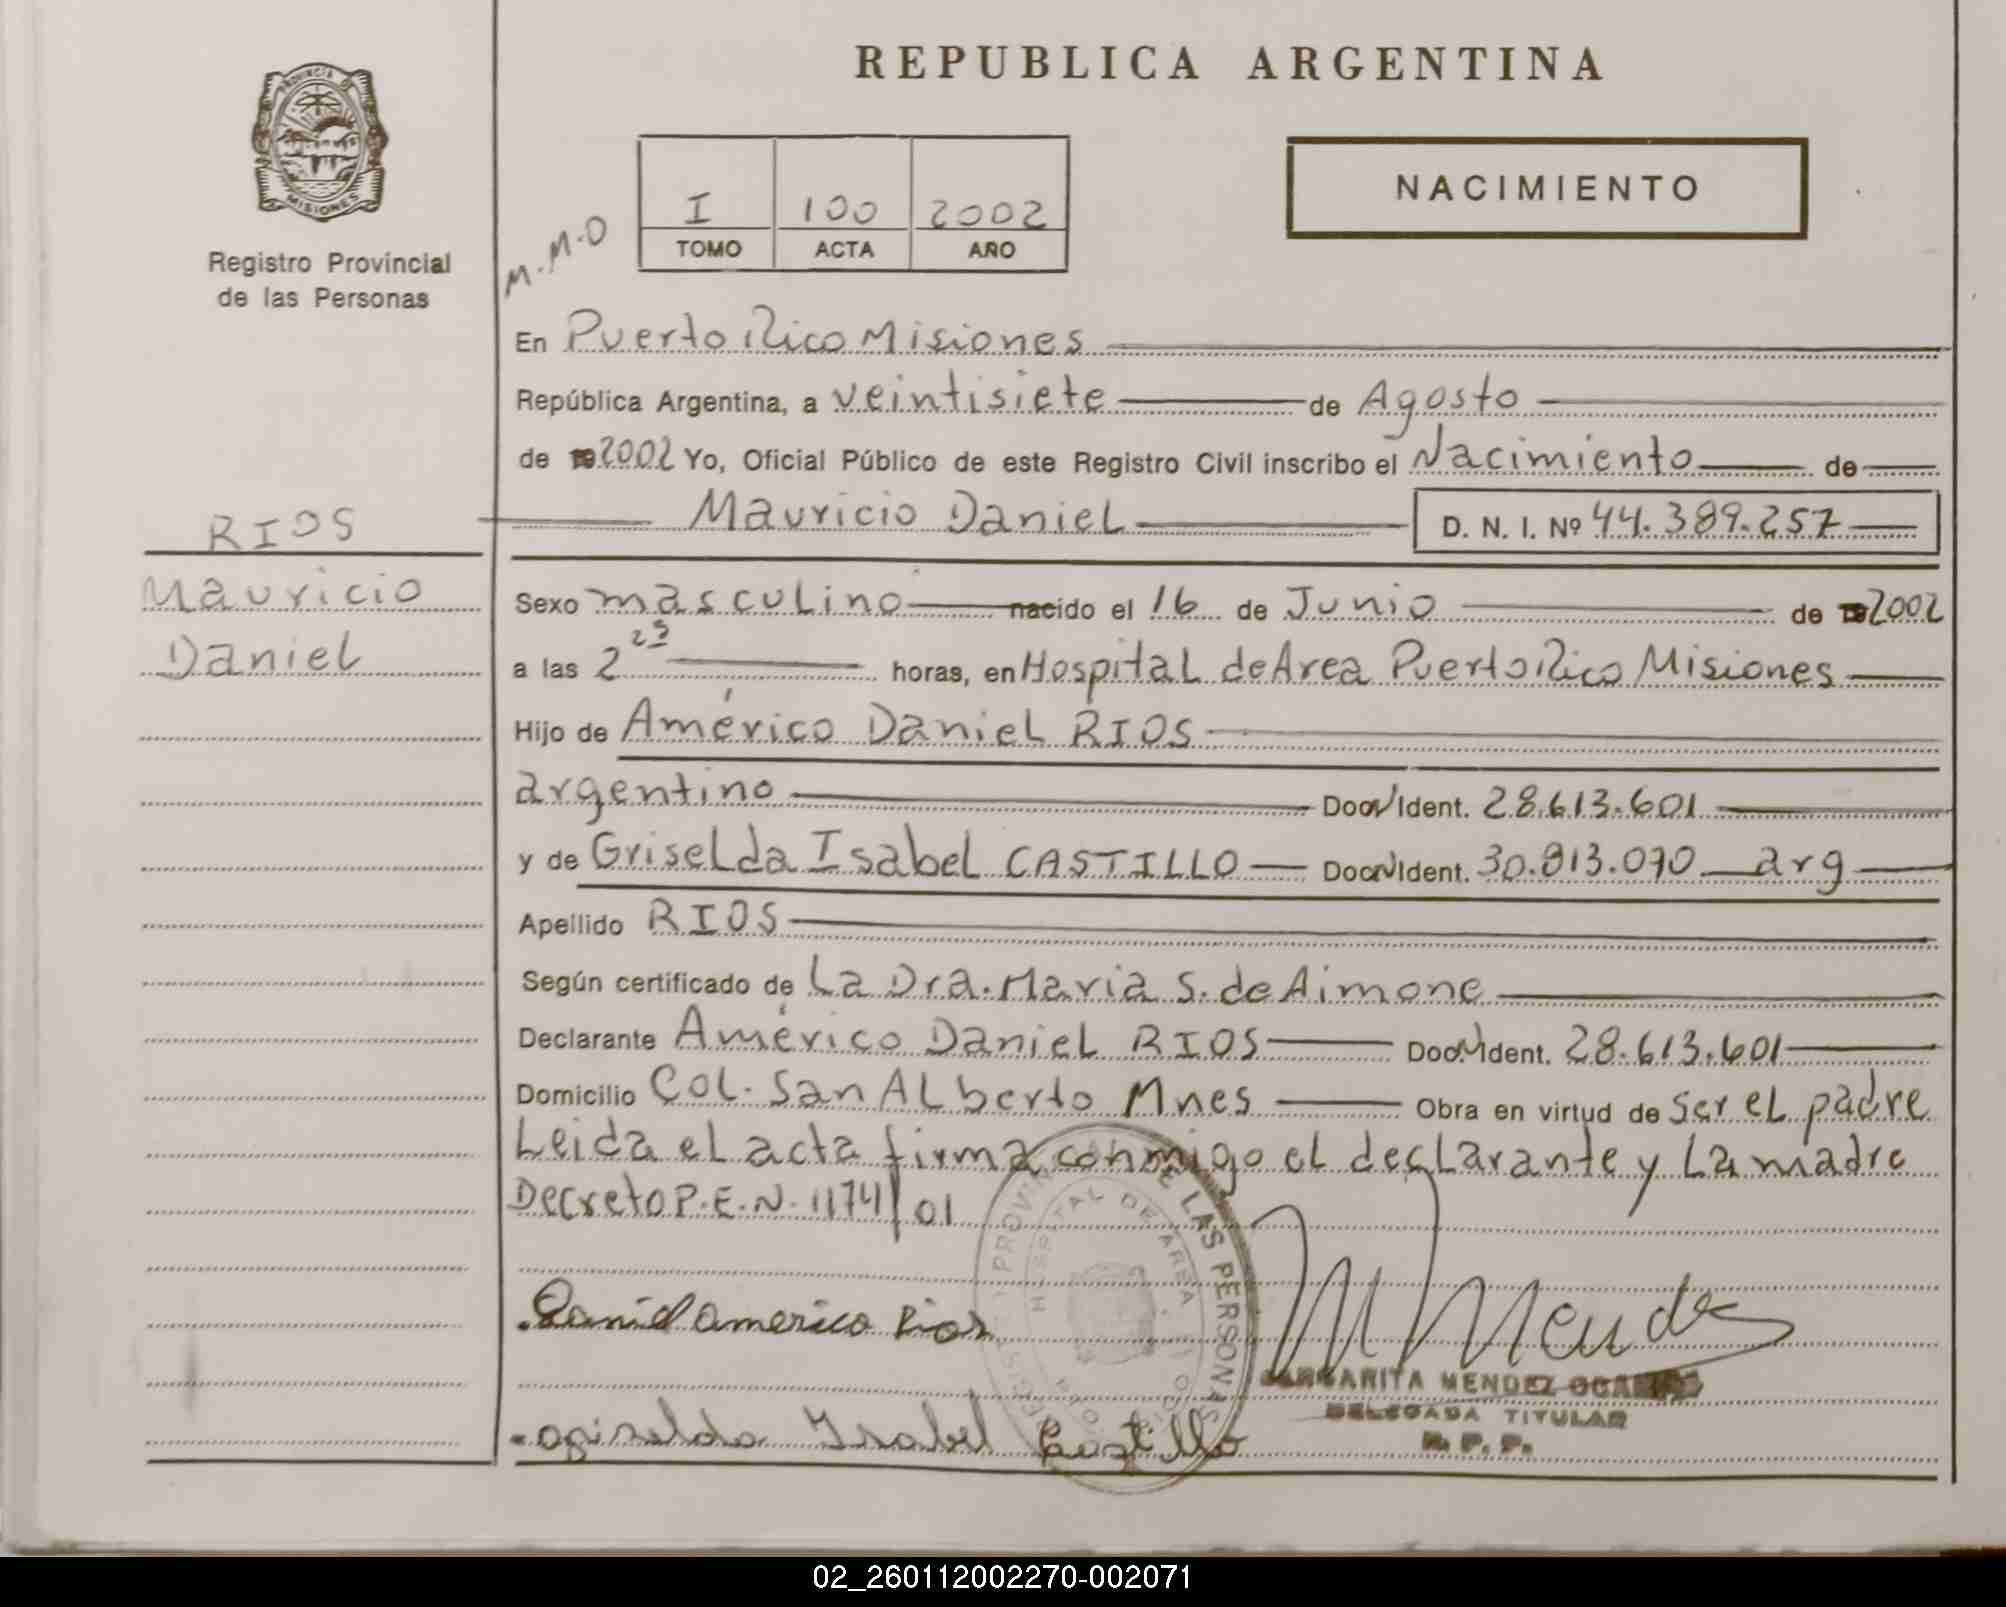 REPUBLICA ARGENTINA
PROVINCIA DE
MISIONES
Registro Provincial
de las Personas
NACIMIENTO
I 100 2002
TOMO ACTA AÑO
M.M.O
En Puerto Rico Misiones
República Argentina, a veintisiete de Agosto
de 2002 Yo, Oficial Público de este Registro Civil inscribo el Nacimiento de
Mauricio Daniel D. N. I. Nº 44.389.257
RIOS
Mauricio
Daniel
Sexo masculino nacido el 16 de Junio de 2002
a las 2 25 horas, en Hospital de Area Puerto Rico Misiones
Hijo de Américo Daniel RIOS
argentino Doc. Ident. 28.613.601
y de Griselda Isabel CASTILLO Doc. Ident. 30.813.070 arg
Apellido RIOS
Según certificado de La Dra. Maria S. de Aimone
Declarante Américo Daniel RIOS Doc. Ident. 28.613.601
Domicilio Col. San ALberto Mnes Obra en virtud de ser el padre
Leida el acta firma conmigo el declarante y La madre
Decreto P.E.N. 1174/01
Daniel americo Rios
M Mendez
MARGARITA MENDEZ
DELEGADA TITULAR
R. P. P.
Griselda Ysabel Castillo
DE LAS PERSONAS
HOSPITAL DE AREA
02_260112002270-002071